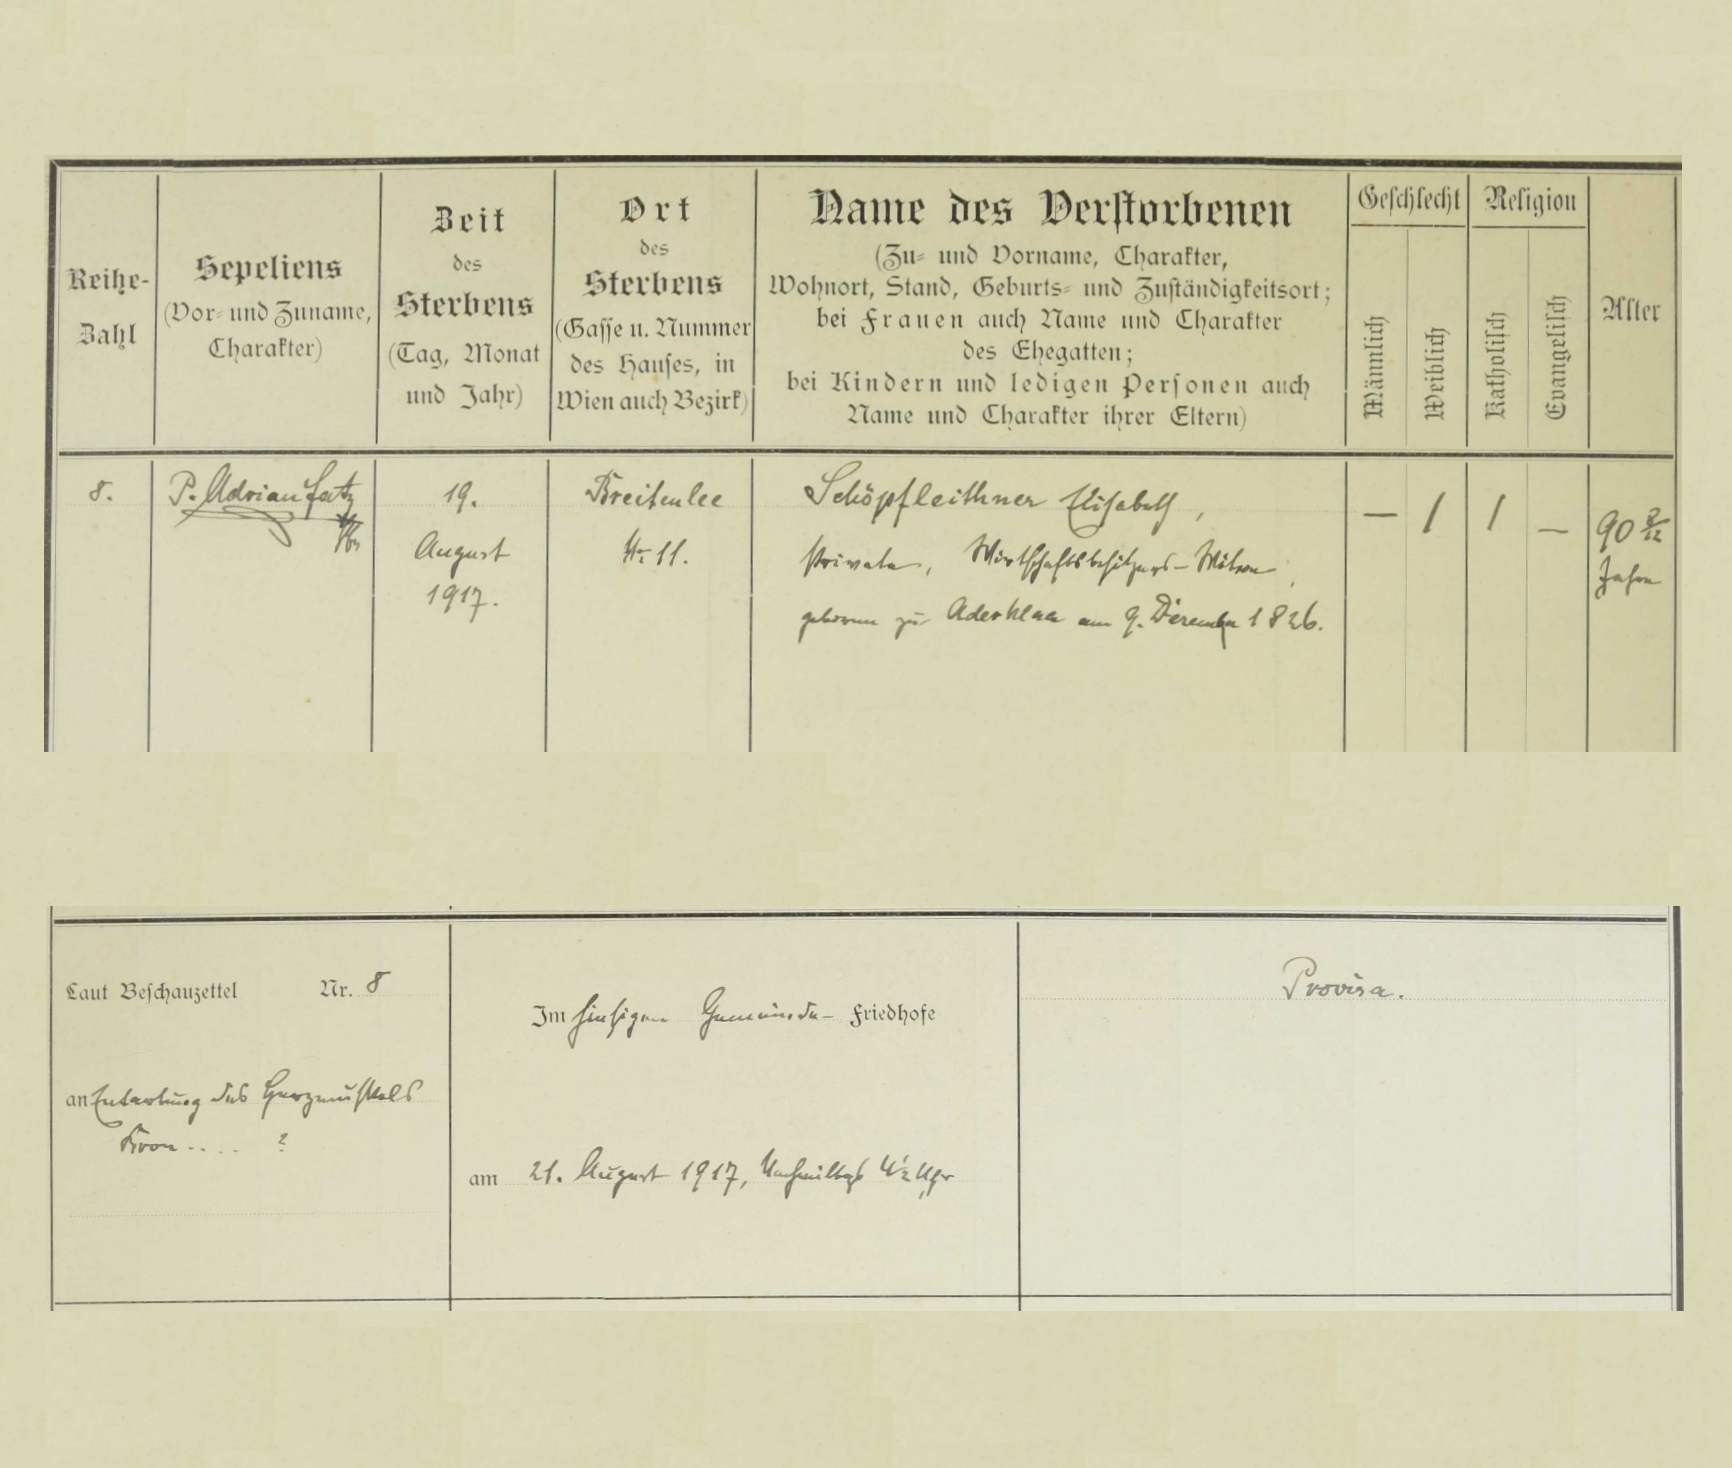 Reihe-
Zahl
Sepeliens
(Vor- und Zuname,
Charakter)
Zeit
des
Sterbens
(Tag, Monat
und Jahr)
Ort
des
Sterbens
(Gasse u. Nummer
des Hauses, in
Wien auch Bezirk)
Name des Verstorbenen
(Zu- und Vorname, Charakter,
Wohnort, Stand, Geburts- und Zuständigkeitsort;
bei Frauen auch Name und Charakter
des Ehegatten;
bei Kindern und ledigen Personen auch
Name und Charakter ihrer Eltern)
Geschlecht
Männlich
Weiblich
Religion
Katholisch
Evangelisch
Alter
8.
P. Adrian
19.
August
1917.
Breitenlee
Nr. 11.
Schöpfleithner Elisabeth,
Private, Wirtschaftsbesitzers-Witwe,
geboren zu Aderklaa am 9. Dezember 1826.
— 1 1 —
90 8/12
Jahre
Laut Beschauzettel Nr. 8
an Entartung des Herzmuskels
Kron.... ?
Im hiesigen Gemeinde- Friedhofe
am 21. August 1917, Nachmittags 4½ Uhr
Provisa.